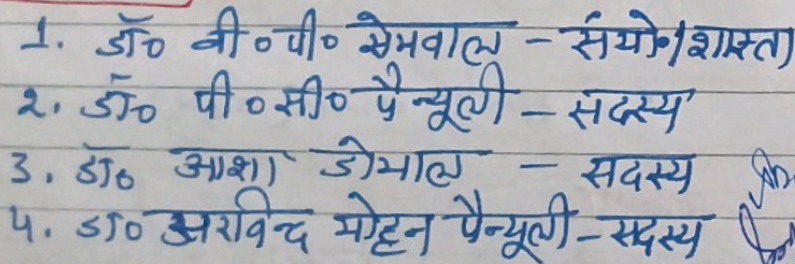 1. डॉ० बी०पी० सेमवाल – संयो०/शास्ता
2. डॉ० पी०सी० पैन्यूली – सदस्य
3. डा० आशा डोभाल – सदस्य
4. डा० अरविन्द मोहन पैन्यूली – सदस्य